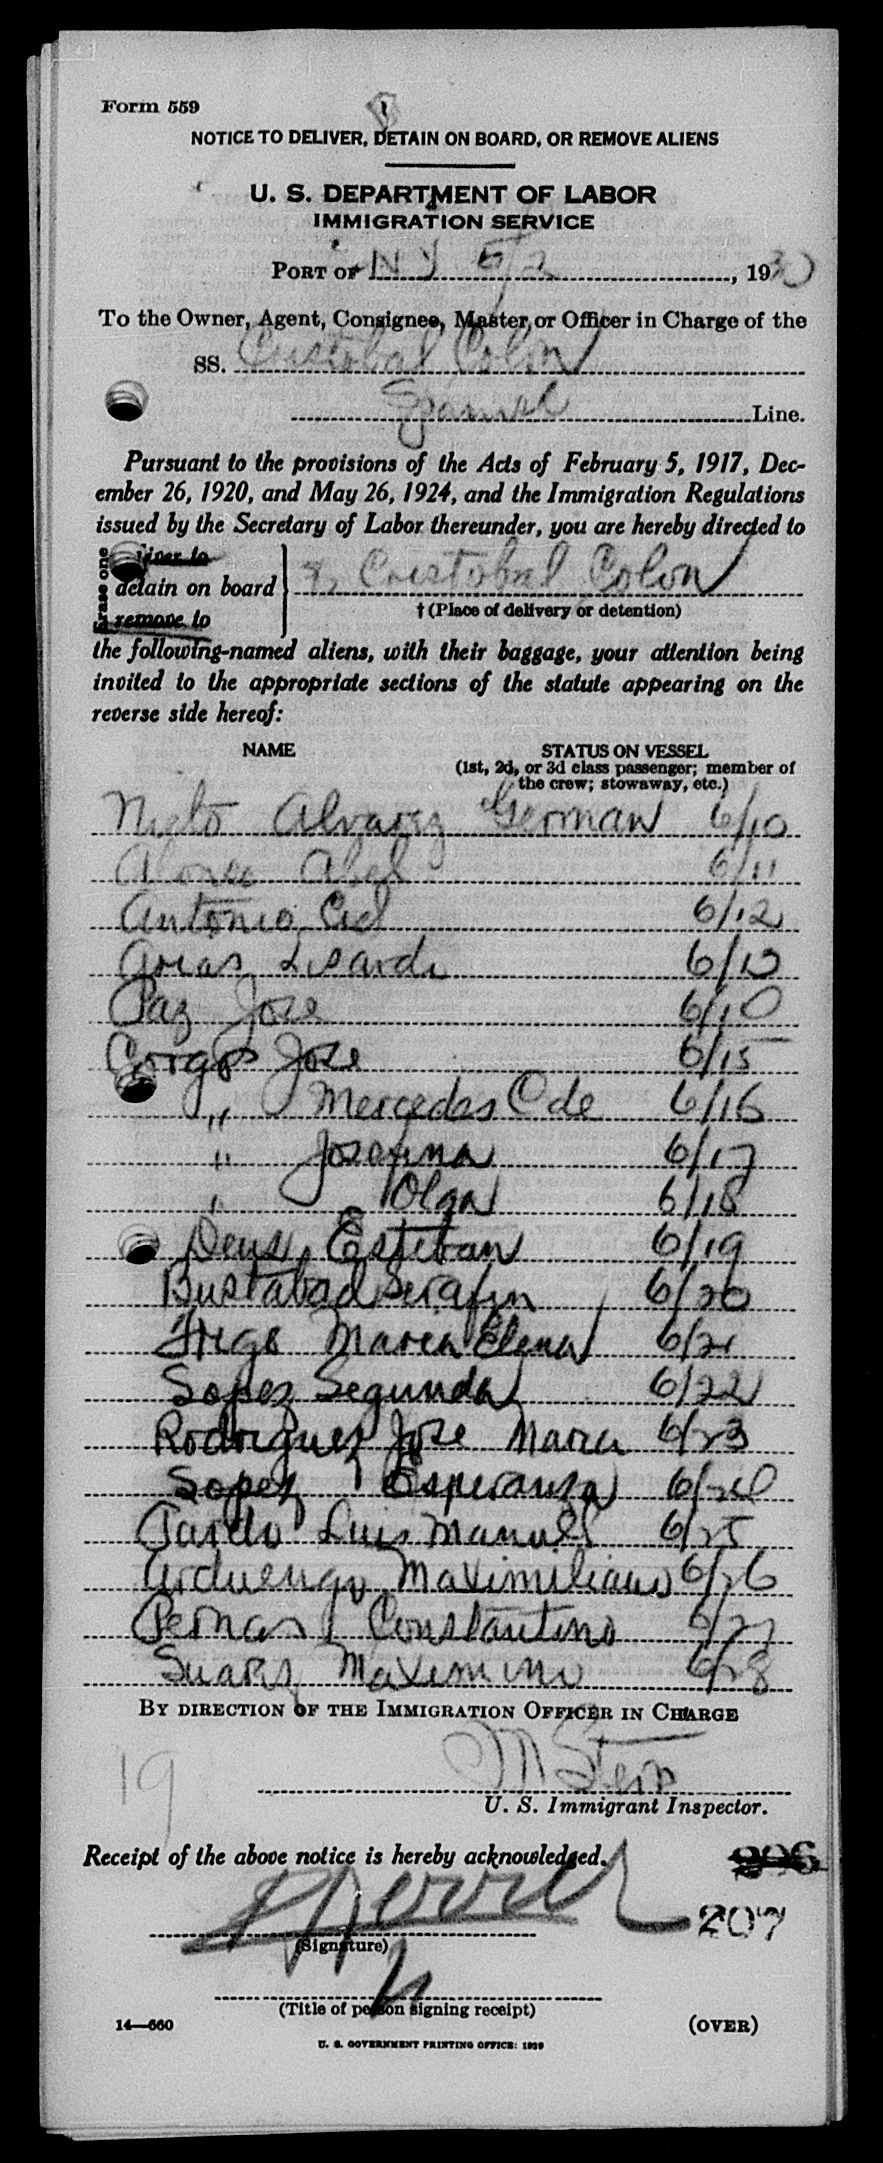 Form 559
NOTICE TO DELIVER, DETAIN ON BOARD, OR REMOVE ALIENS
U. S. DEPARTMENT OF LABOR
IMMIGRATION SERVICE
PORT OF N Y 5/2, 1930
To the Owner, Agent, Consignee, Master, or Officer in Charge of the
SS. Cristobal Colon
Spanish Line.
Pursuant to the provisions of the Acts of February 5, 1917, Dec-
ember 26, 1920, and May 26, 1924, and the Immigration Regulations
issued by the Secretary of Labor thereunder, you are hereby directed to
Erase one
deliver to
detain on board Cristobal Colon
remove to
† (Place of delivery or detention)
the following-named aliens, with their baggage, your attention being
invited to the appropriate sections of the statute appearing on the
reverse side hereof:
NAME STATUS ON VESSEL
(1st, 2d, or 3d class passenger; member of
the crew; stowaway, etc.)
Nieto Alvarez German 6/10
Alonso Abel 6/11
Antonio Cid 6/12
Arias Lisardo 6/13
Paz Jose
Jose 6/15
" Mercedes O de 6/16
" Josefina 6/17
" Olga 6/18
Deus, Esteban 6/19
Bustabad Serafin 6/20
Trigo Maria Elena 6/21
Lopez Segunda 6/22
Rodriguez Jose Maria 6/23
Lopez Esperanza 6/24
Pardo Luis Manuel 6/25
Arduengo Maximiliano 6/26
Pernas Constantino 6/27
Suarez Maximino 6/28
BY DIRECTION OF THE IMMIGRATION OFFICER IN CHARGE
19 M Stein
U. S. Immigrant Inspector.
Receipt of the above notice is hereby acknowledged.
206
207
(Signature)
(Title of person signing receipt)
14—660 (OVER)
U. S. GOVERNMENT PRINTING OFFICE: 1929